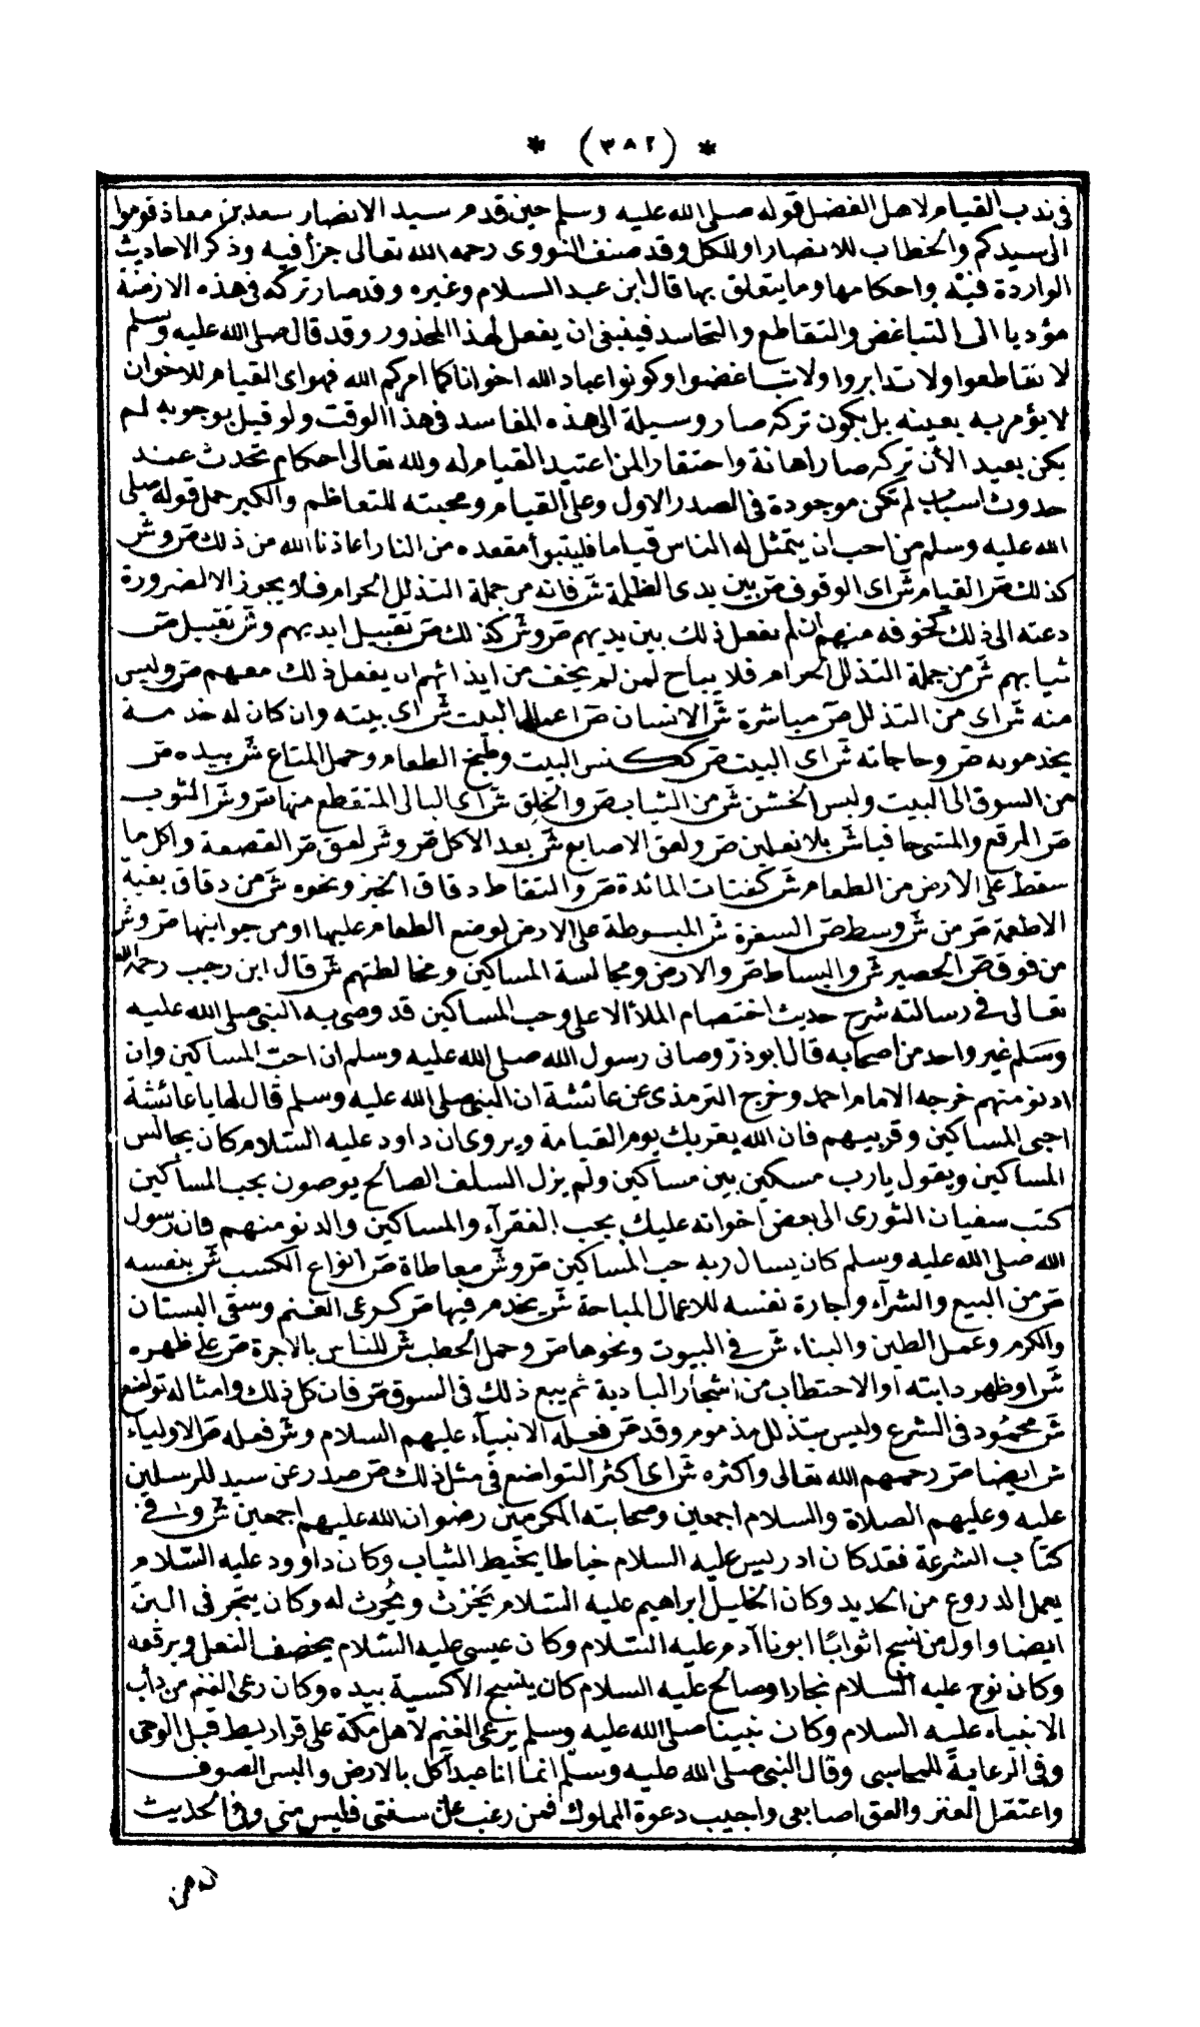 * (٣٨٢) *
في ندب القيام لاهل الفضل قوله صلى الله عليه وسلم حين قدم سيد الانصار سعد بن معاذ قوموا
الى سيدكم والخطاب للانصار او للكل وقد صنف النووى رحمه الله تعالى جزأ فيه وذكر الاحاديث
الواردة فيه واحكامها وما يتعلق بها قال ابن عبد السلام وغيره وقد صار تركه فى هذه الازمنة
مؤديا الى التباغض والتقاطع والتحاسد فينبغى ان يفعل لهذا المحذور وقد قال صلى الله عليه وسلم
لا تقاطعوا ولا تدابروا ولا تباغضوا وكونوا عباد الله اخوانا كما امركم الله فهو اى القيام للاخوان
لا يؤمر به بعينه بل يكون تركه صار وسيلة الى هذه المفاسد فى هذا الوقت ولو قيل بوجوبه لم
يكن بعيد الأن تركه صار اهانة واحتقارا لمن اعتيد القيام له ولله تعالى احكام تحدث عند
حدوث اسباب لم تكن موجودة فى الصدر الاول وعلى القيام ومحبته للتعاظم والكبر حمل قوله صلى
الله عليه وسلم من احب ان يتمثل له الناس قياما فليتبوأ مقعده من النار أعاذنا الله من ذلك ص و ش
كذلك ص القيام ش اى الوقوف ص بين يدى الظلمة ش فانه من جملة التذلل الحرام فلا يجوز الا لضرورة
دعته الى ذلك كخوفه منهم ان لم يفعل ذلك بين يديهم ص و ش كذلك ص تقبيل ايديهم و ش تقبيل ص
ثيابهم ش من جملة التذلل الحرام فلا يباح لمن لم يخف من ايذائهم ان يفعل ذلك معهم ص وليس
منه ش اى من التذلل ص مباشرة ش الانسان ص اعمال البيت ش اى بيته وان كان له خدمة
يخدمونه ص وحاجاته ش اى البيت ص ككنس البيت وطبخ الطعام وحمل المتاع ش بيده ص
من السوق الى البيت ولبس الخشن ش من الثياب ص والخلق ش اى البالى المتقطع منها ص و ش الثوب
ص المرقع والمشى حافيا ش بلا نعلين ص ولعق الاصابع ش بعد الاكل ص و ش لعق ص القصعة واكل ما
سقط على الارض من الطعام ش كفتات المائدة ص والتقاط دقاق الخبز ونحوه ش من دقاق بقية
الاطعمة ص من ش وسط ص السفرة ش المبسوطة على الارض لوضع الطعام عليها او من جوانبها ص و ش
من فوق ص الحصير ش والبساط ص والارض ومجالسة المساكين ومخالطتهم ش قال ابن رجب رحمه الله
تعالى فى رسالته شرح حديث اختصام الملأ الاعلى وحب المساكين قد وصى به النبى صلى الله عليه
وسلم غير واحد من اصحابه قال ابو ذر وصانى رسول الله صلى الله عليه وسلم ان احب المساكين وان
ادنو منهم خرجه الامام احمد وخرج الترمذى عن عائشة ان النبى صلى الله عليه وسلم قال لها يا عائشة
احبى المساكين وقربيهم فان الله يقربك يوم القيامة ويروى ان داود عليه السلام كان يجالس
المساكين ويقول يا رب مسكين بين مساكين ولم يزل السلف الصالح يوصون بحب المساكين
كتب سفيان الثورى الى بعض اخوانه عليك بحب الفقرآء والمساكين والدنو منهم فان رسول
الله صلى الله عليه وسلم كان يسال ربه حب المساكين ص و ش معاطاة ص انواع الكسب ش بنفسه
ص من البيع والشرآء واجارة نفسه للاعمال المباحة ش يخدم فيها ص كرعى الغنم وسقى البستان
والكرم وعمل الطين والبناء ش فى البيوت ونحوها ص وحمل الحطب ش للناس بالاجرة ص على ظهره
ش او ظهر دابته او الاحتطاب من اشجار البادية ثم يبيع ذلك فى السوق ص فان كل ذلك وامثاله تواضع
ش محمود فى الشرع وليس بتذلل مذموم وقد ص فعله الانبيآء عليهم السلام و ش فعله ص الاولياء
ش ايضا ص رحمهم الله تعالى واكثره ش اى اكثر التواضع فى مثل ذلك ص صدر عن سيد المرسلين
عليه وعليهم الصلاة والسلام اجمعين وصحابته المكرمين رضوان الله عليهم اجمعين ش و فى
كتاب الشرعة فقد كان ادريس عليه السلام خياطا يخيط الثياب وكان داوود عليه السلام
يعمل الدروع من الحديد وكان الخليل ابراهيم عليه السلام يحرث ويحرث له وكان يتجر فى البز
ايضا واول من نسج اثوابا ابونا آدم عليه السلام وكان عيسى عليه السلام يخصف النعل ويرقعه
وكان نوح عليه السلام نجارا وصالح عليه السلام كان ينسج الاكسية بيده وكان رعى الغنم من دأب
الانبياء عليه السلام وكان نبينا صلى الله عليه وسلم يرعى الغنم لاهل مكة على قراريط قبل الوحى
وفى الرعاية للمحاسبى وقال النبى صلى الله عليه وسلم انما انا عبد آكل بالارض والبس الصوف
واعتقل العنز والعق اصابعى واجيب دعوة المملوك فمن رغب عن سنتى فليس منى وفى الحديث